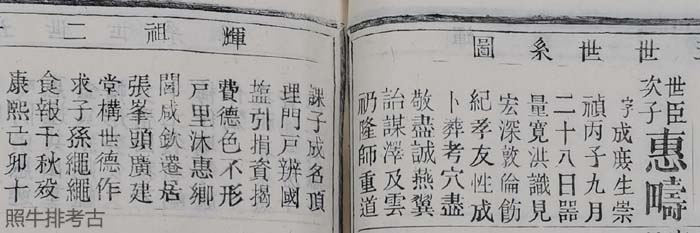 世世系圖
世臣次子惠疇
字成生崇
禎丙子九月
二十八日器
量寬洪識見
宏深敦倫飭
紀孝友性成
卜葬考穴盡
敬盡誠燕翼
詒謀澤及雲
礽隆師重道
輝祖二
課子成名頂
理門戸辨國
塩引捐資揭
費德色不形
戸里沐惠鄉
閭咸欽遷居
張峯頭廣建
堂構世德作
求子孫繩繩
食報千秋歿
康熙己卯十
照牛排考古